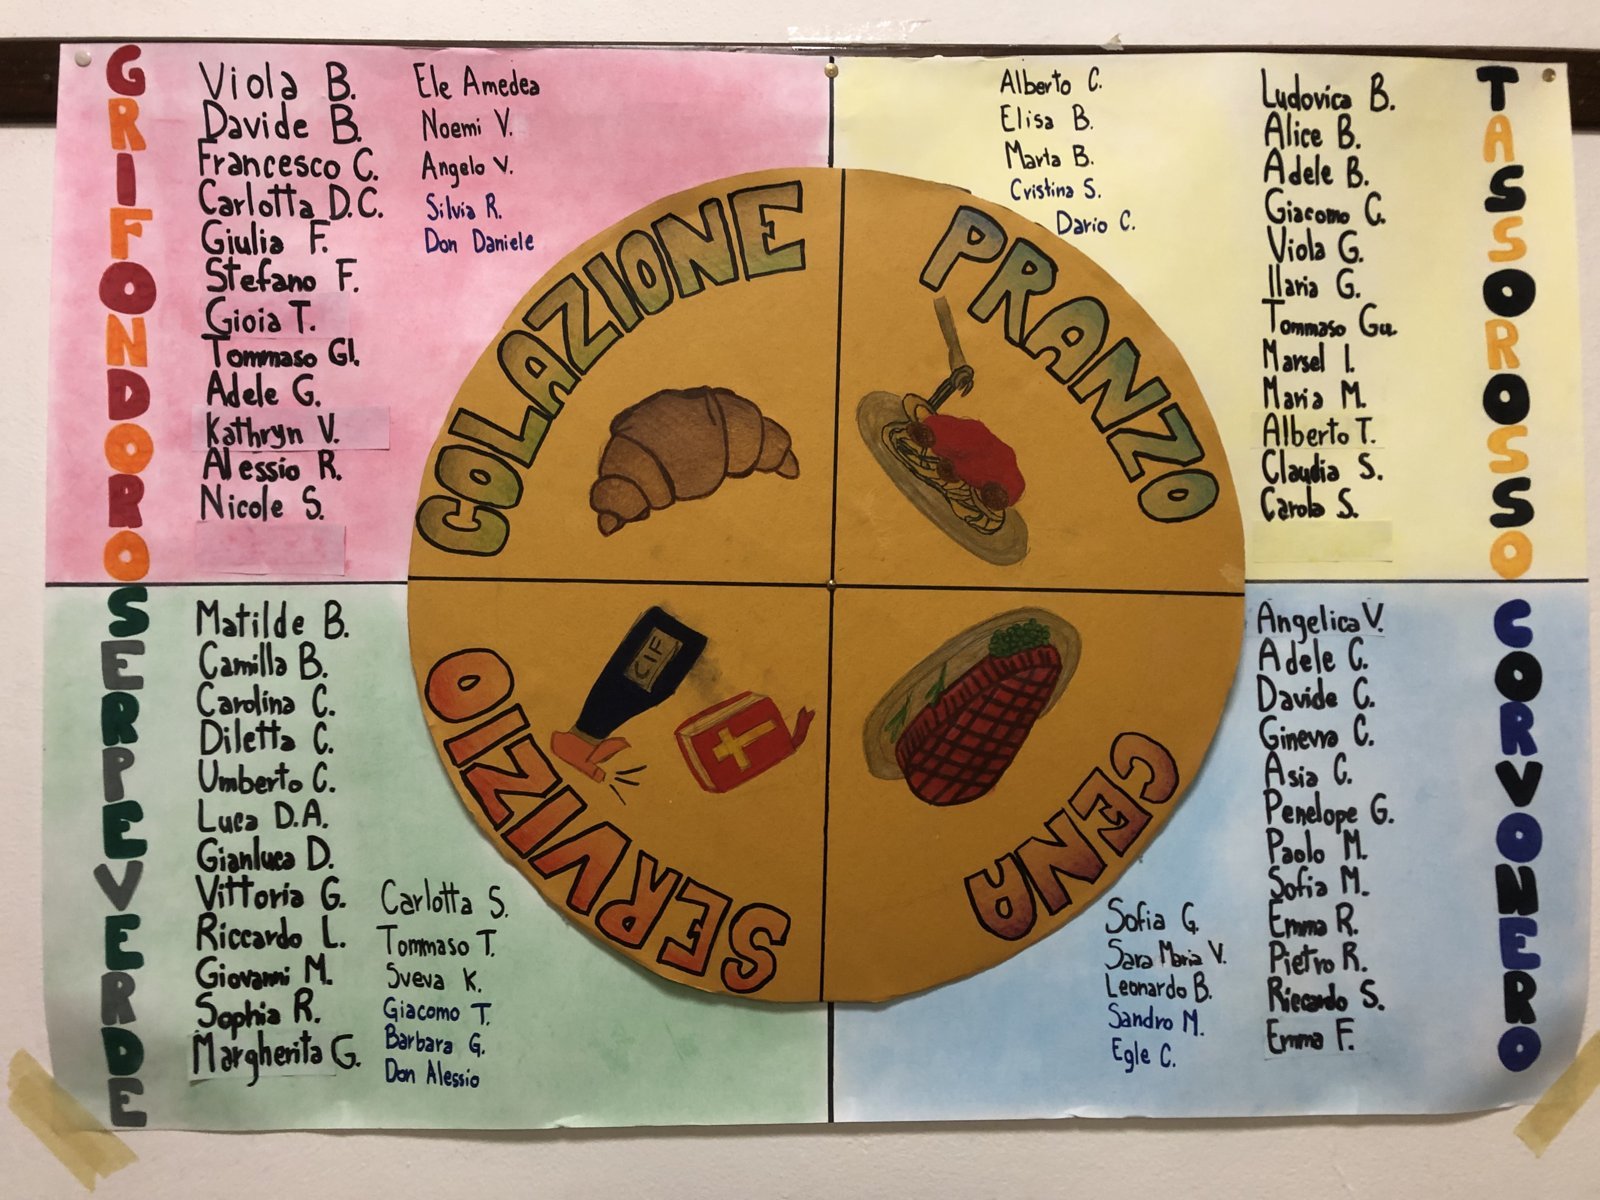 GRIFONDORO
Viola B.
Davide B.
Francesco C.
Carlotta D.C.
Giulia F.
Stefano F.
Gioia T.
Tommaso Gl.
Adele G.
Kathryn V.
Alessio R.
Nicole S.
Ele Amedea
Noemi V.
Angelo V.
Silvia R.
Don Daniele
COLAZIONE
PRANZO
Alberto C.
Elisa B.
Marta B.
Cristina S.
Dario C.
Ludovica B.
Alice B.
Adele B.
Giacomo C.
Viola G.
Ilaria G.
Tommaso Gu.
Marsel I.
Maria M.
Alberto T.
Claudia S.
Carola S.
TASSOROSSO
SERPEVERDE
Matilde B.
Camilla B.
Carolina C.
Diletta C.
Umberto C.
Luca D.A.
Gianluca D.
Vittoria G.
Riccardo L.
Giovanni M.
Sophia R.
Margherita G.
Carlotta S.
Tommaso T.
Sveva K.
Giacomo T.
Barbara G.
Don Alessio
SERVIZIO
CIF
CENA
Sofia G.
Sara Maria V.
Leonardo B.
Sandro M.
Egle C.
Angelica V.
Adele C.
Davide C.
Ginevra C.
Asia C.
Penelope G.
Paolo M.
Sofia M.
Emma R.
Pietro R.
Riccardo S.
Emma F.
CORVONERO